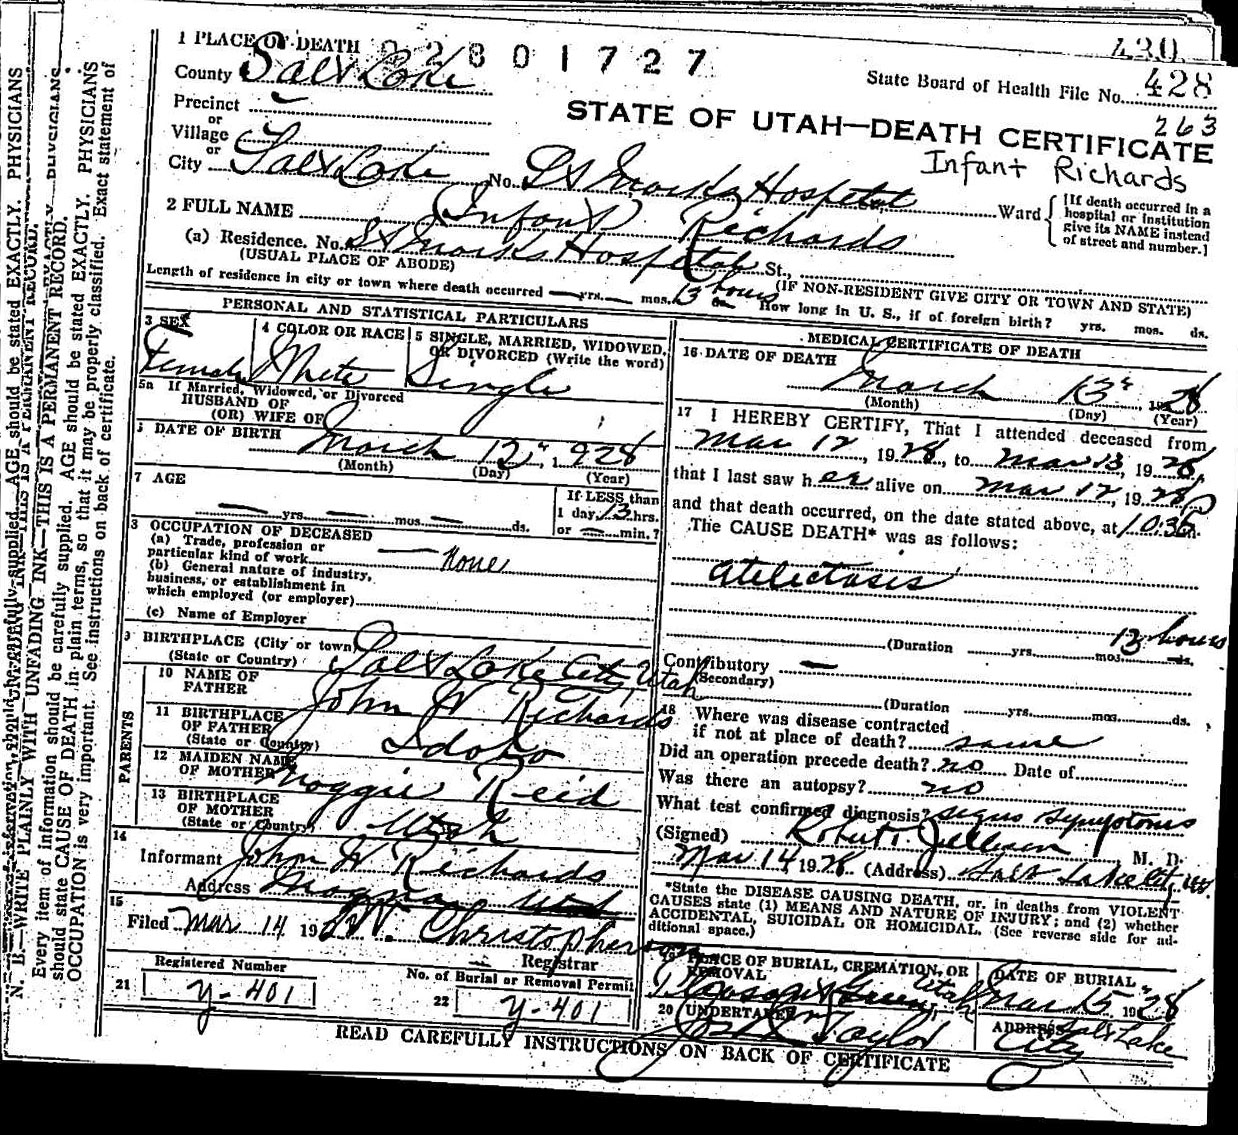 430
1 PLACE OF DEATH 02801727
County Salt Lake
State Board of Health File No. 428
263
Precinct
or
Village
or
STATE OF UTAH—DEATH CERTIFICATE
Infant Richards
City Salt Lake No. St Marks Hospital Ward
[If death occurred in a
hospital or institution
give its NAME instead
of street and number.]
2 FULL NAME (Infant) Richards
(a) Residence. No. St Marks Hospital St.,
(USUAL PLACE OF ABODE)
(IF NON-RESIDENT GIVE CITY OR TOWN AND STATE)
Length of residence in city or town where death occurred — yrs. mos. 13 hours How long in U. S., if of foreign birth? yrs. mos. ds.
PERSONAL AND STATISTICAL PARTICULARS
3 SEX
Female
4 COLOR OR RACE
White
5 SINGLE, MARRIED, WIDOWED,
OR DIVORCED (Write the word)
Single
5a If Married, Widowed, or Divorced
HUSBAND OF
(OR) WIFE OF
DATE OF BIRTH March 12, 1928
(Month) (Day) (Year)
7 AGE
— yrs. — mos. — ds.
If LESS than
1 day, 13 hrs.
or — min.?
OCCUPATION OF DECEASED
(a) Trade, profession or
particular kind of work — None
(b) General nature of industry,
business, or establishment in
which employed (or employer)
(c) Name of Employer
9 BIRTHPLACE (City or town)
(State or Country) Salt Lake City Utah
PARENTS
10 NAME OF
FATHER John W Richards
11 BIRTHPLACE
OF FATHER
(State or Country) Idaho
12 MAIDEN NAME
OF MOTHER Maggie Reid
13 BIRTHPLACE
OF MOTHER
(State or Country) Utah
14
Informant John W Richards
Address Morgan Utah
15
Filed Mar 14 19 W. Christopherson
Registrar
Registered Number
21 Y-401
No. of Burial or Removal Permit
22 Y-401
MEDICAL CERTIFICATE OF DEATH
16 DATE OF DEATH
March 13, 1928
(Month) (Day) (Year)
17 I HEREBY CERTIFY, That I attended deceased from
Mar 12, 1928, to Mar 13, 1928,
that I last saw her alive on Mar 12, 1928
and that death occurred, on the date stated above, at m.
The CAUSE DEATH* was as follows:
Atelectasis
(Duration yrs. mos. 13 hours ds.
Contributory —
(Secondary)
(Duration yrs. mos. ds.
18 Where was disease contracted
if not at place of death? same
Did an operation precede death? no Date of
Was there an autopsy? no
What test confirmed diagnosis? signs symptoms
(Signed) Robert M. D.
Mar 14, 1928 (Address) Salt Lake City Ut.
*State the DISEASE CAUSING DEATH, or, in deaths from VIOLENT
CAUSES state (1) MEANS AND NATURE OF INJURY; and (2) whether
ACCIDENTAL, SUICIDAL OR HOMICIDAL. (See reverse side for ad-
ditional space.)
19 PLACE OF BURIAL, CREMATION, OR
REMOVAL
Utah
DATE OF BURIAL
Mar 15 1928
20 UNDERTAKER
Taylor
ADDRESS Salt Lake
City
READ CAREFULLY INSTRUCTIONS ON BACK OF CERTIFICATE
N. B.—WRITE PLAINLY WITH UNFADING INK—THIS IS A PERMANENT RECORD.
Every item of information should be carefully supplied. AGE should be stated EXACTLY. PHYSICIANS
should state CAUSE OF DEATH in plain terms, so that it may be properly classified. Exact statement of
OCCUPATION is very important. See instructions on back of certificate.